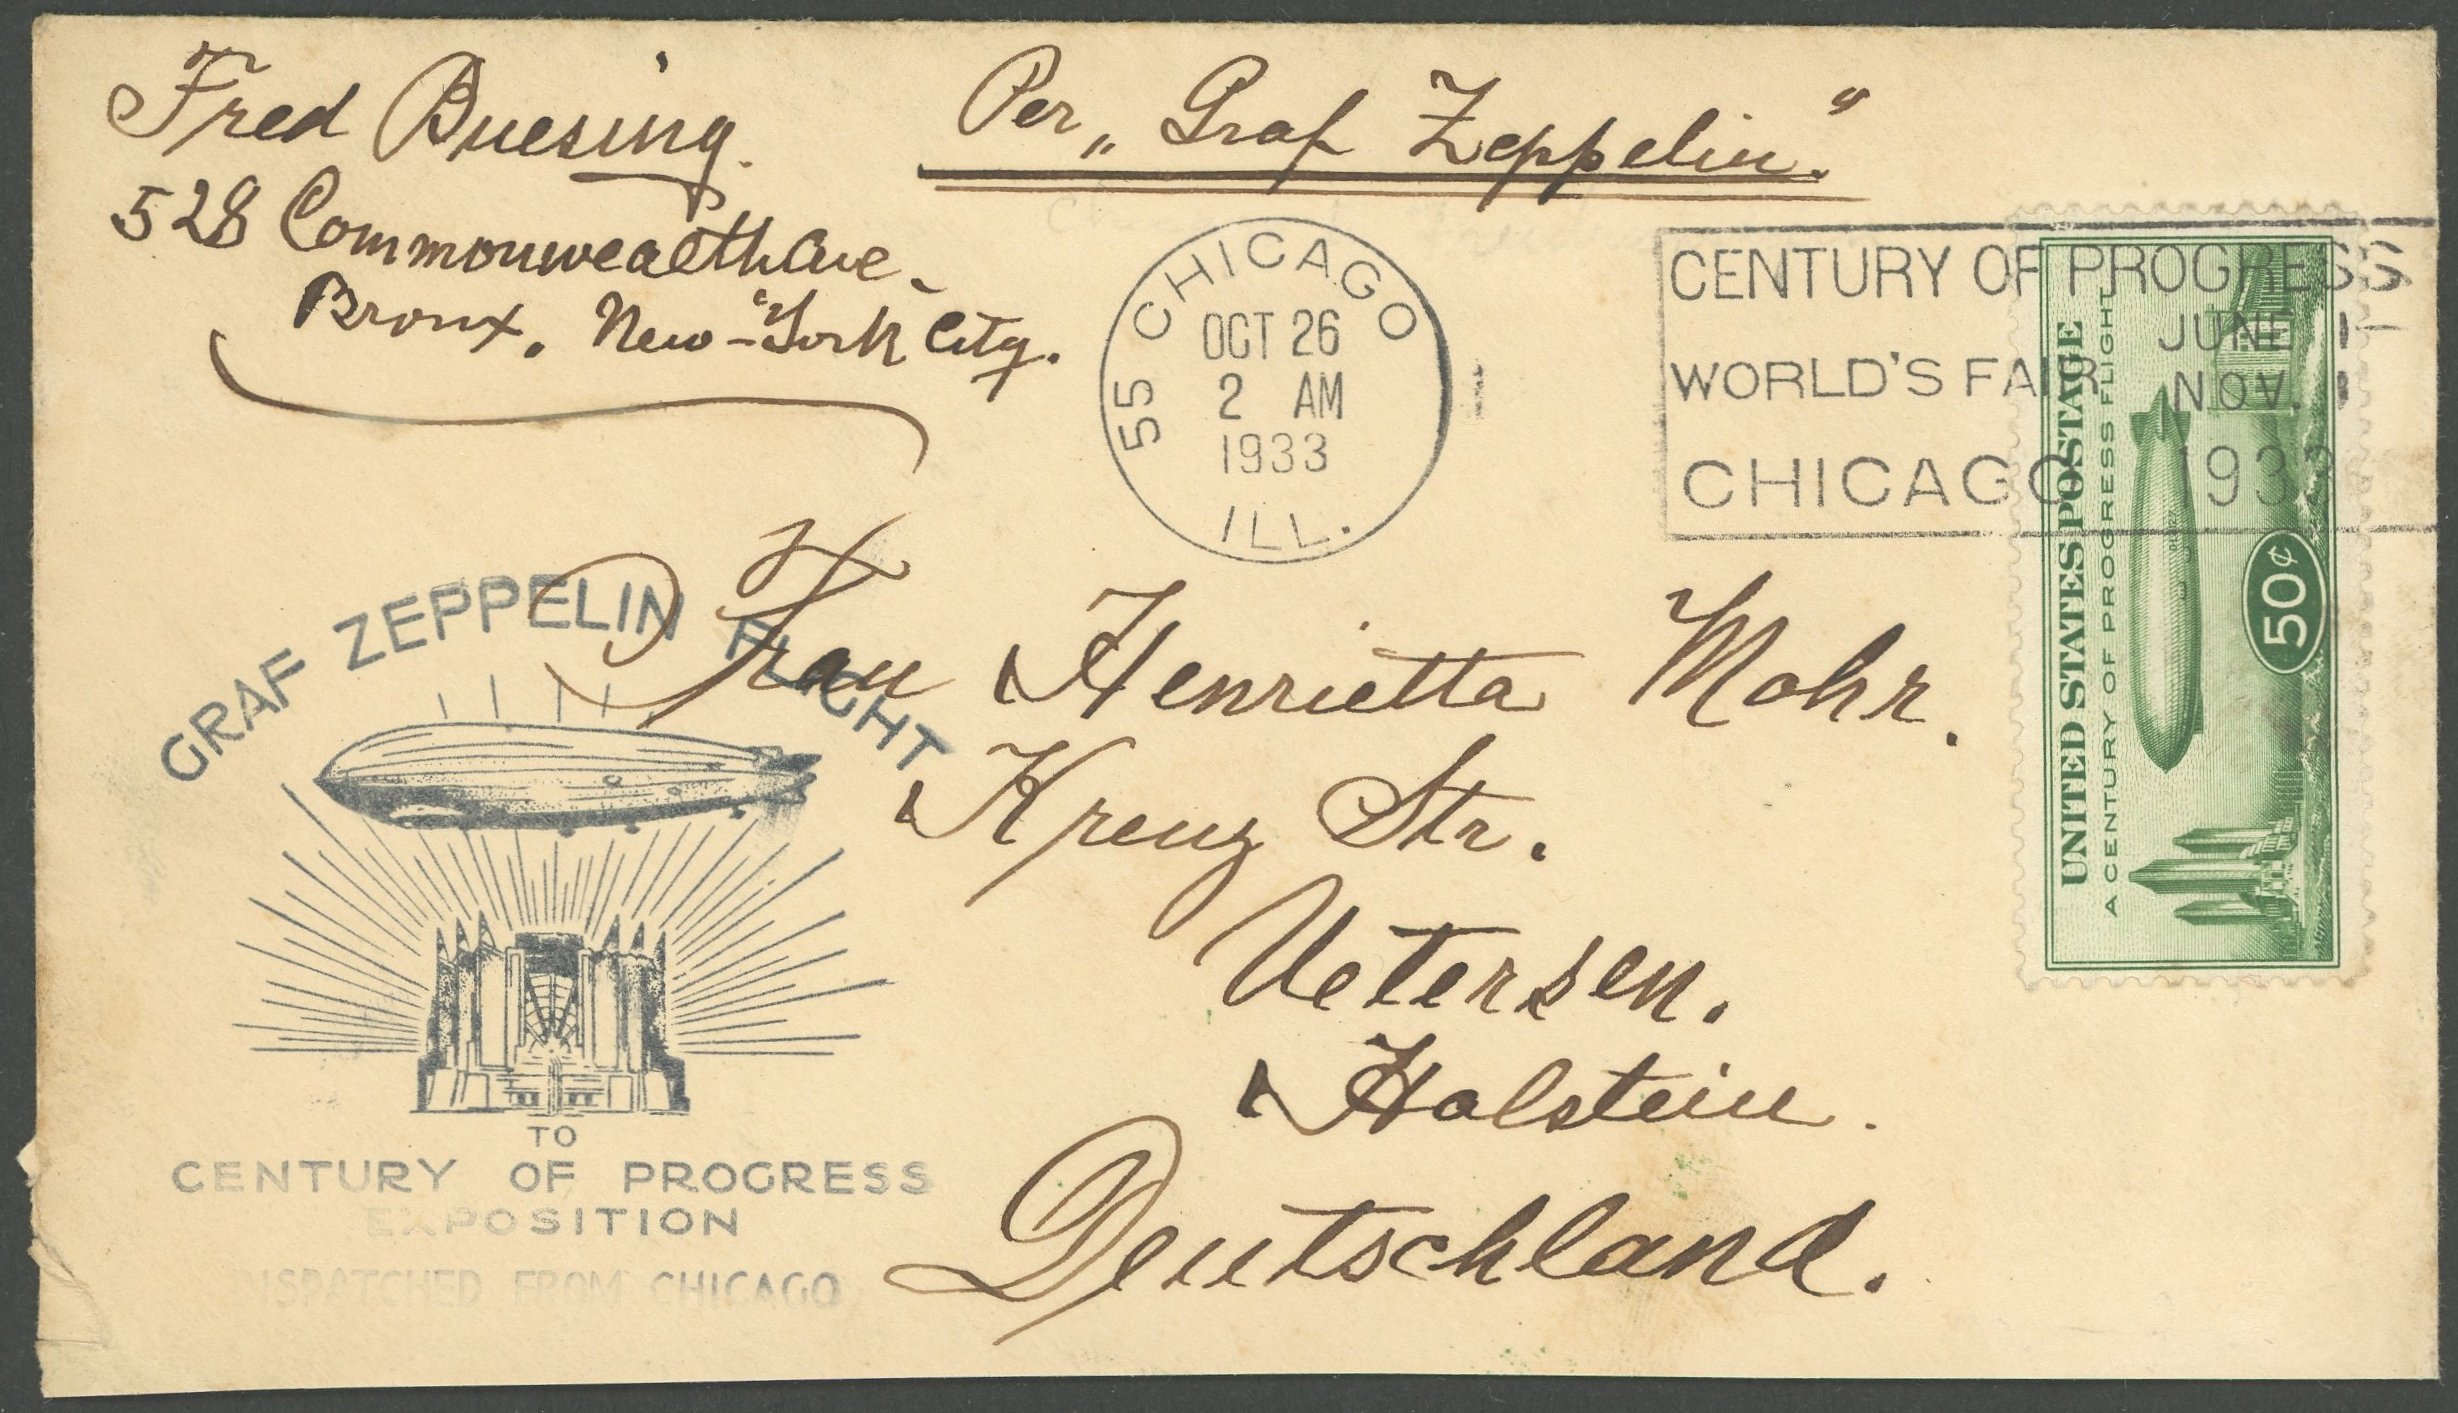 Fred Buesing.
528 Commonwealth Ave.
Bronx. New-York City.
Per „Graf Zeppelin."
55 CHICAGO ILL.
OCT 26
2 AM
1933
CENTURY OF PROGRESS
JUNE 1
WORLD'S FAIR
NOV. 1
CHICAGO 1933
UNITED STATES POSTAGE
A CENTURY OF PROGRESS FLIGHT
50¢
Frau Henrietta Mohr.
Kreuz Str.
Uetersen.
Holstein.
Deutschland.
GRAF ZEPPELIN FLIGHT
TO
CENTURY OF PROGRESS
EXPOSITION
DISPATCHED FROM CHICAGO